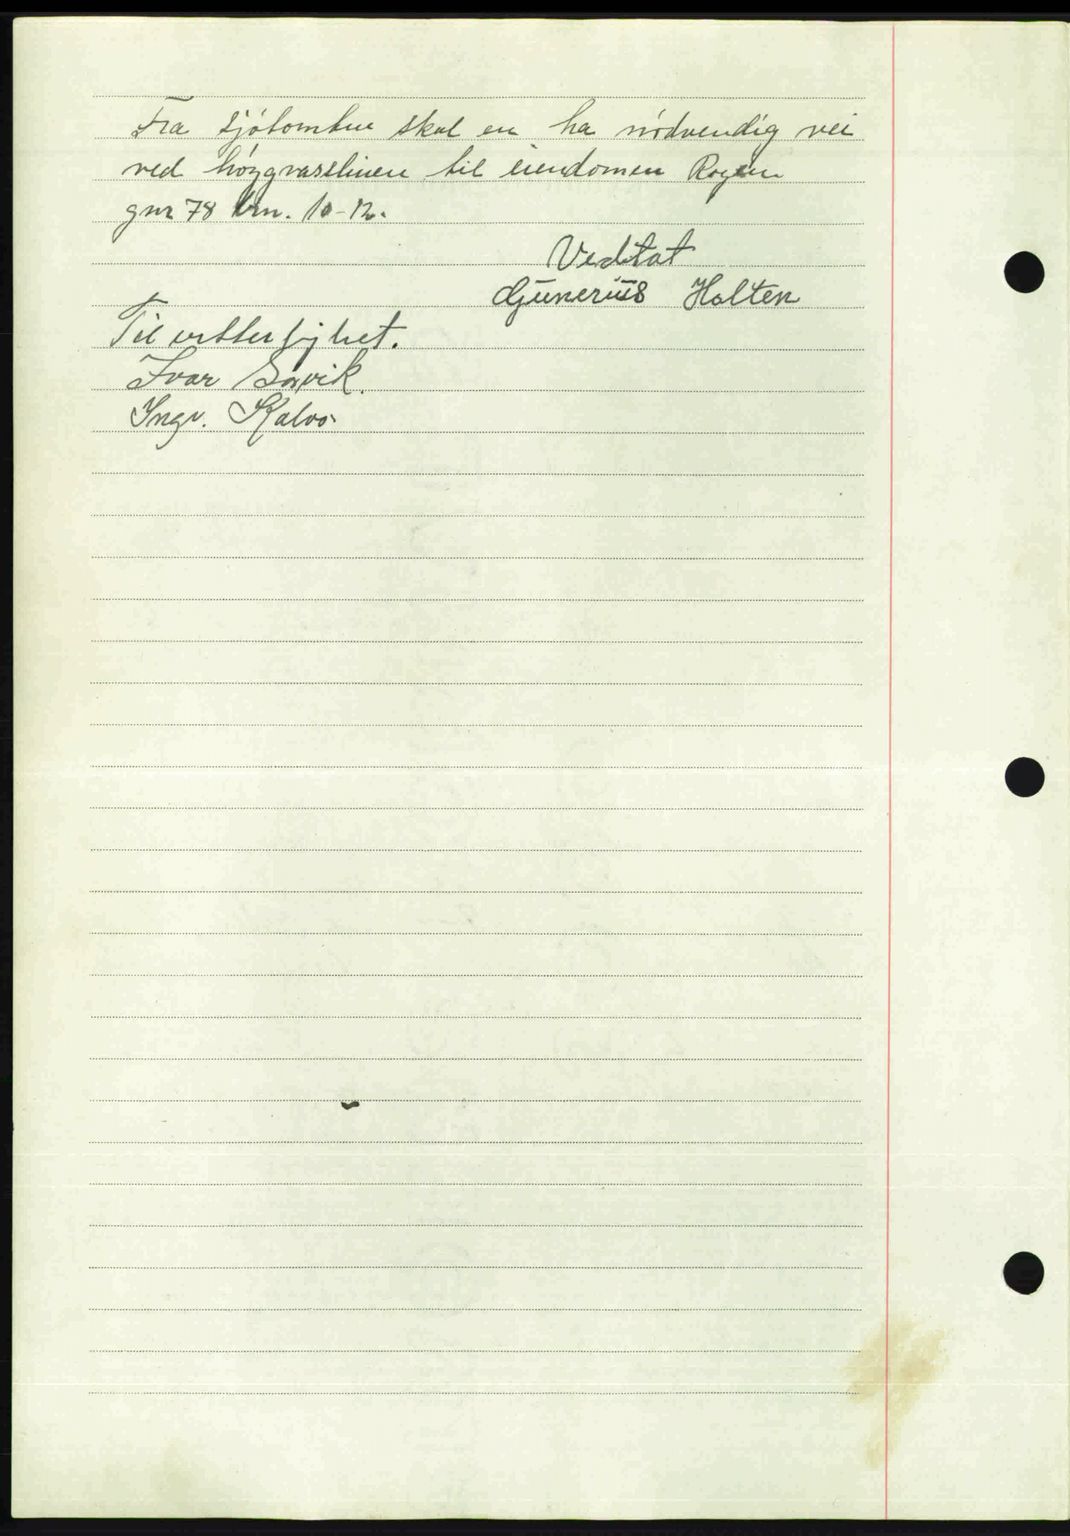 Fra sjøtomten skal en ha nødvendig vei
ved høygvasslinen til eiendomen Rogen
gnr 78 brn. 10-12.
Vedtat
Gunerius Holten
Til vitterlighet.
Ivar Sørvik.
Ingv. Kalvø.